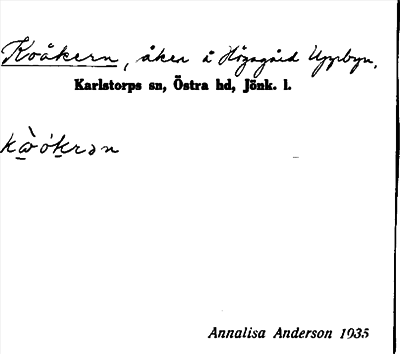 Kvåkern, åker å Högagård Uppbyn,
Karlstorps sn, Östra hd, Jönk. l.
Annalisa Anderson 1935